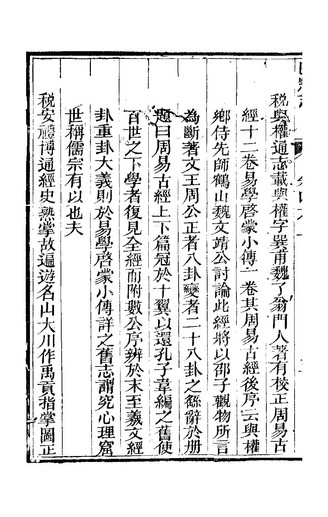 稅與權通志載與權字巽甫魏了翁門人著有校正周易古
經十二卷易學啓蒙小傳一卷其周易古經後序云與權
鄉侍先師鶴山魏文靖公討論此經將以邵子觀物所言
為斷著文王周公正者八卦變者二十八卦之繇辭於册
題曰周易古經上下篇冠於十翼以還孔子韋編之舊使
百世之下學者復見全經而附數公序辨於末至羲文經
卦重卦大義則於易學啓蒙小傳詳之舊志謂究心理窟
世稱儒宗有以也夫
稅安禮博通經史熟掌故遍遊名山大川作禹貢指掌圖正